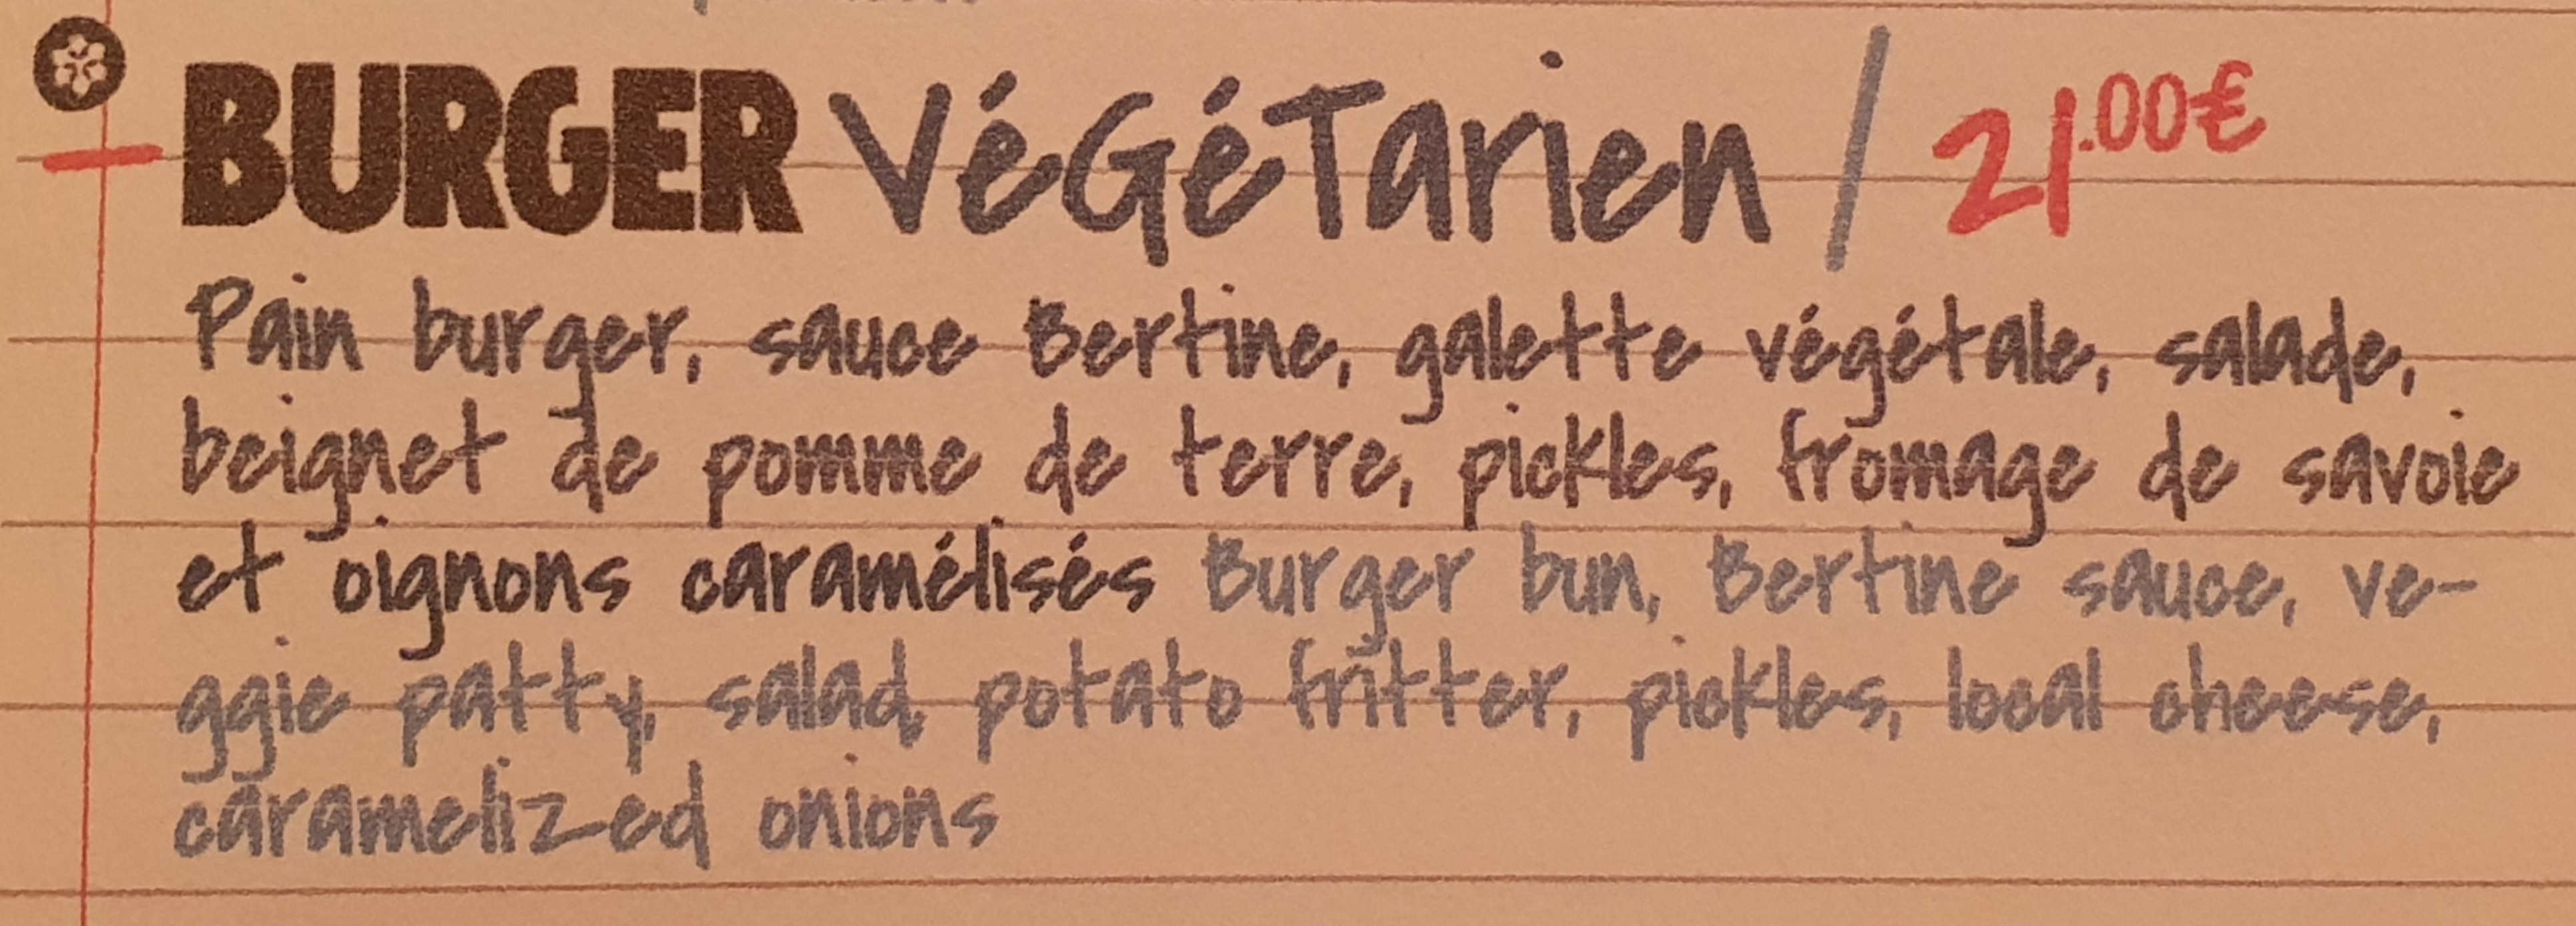 BURGER VéGéTarien / 21.00€
Pain burger, sauce Bertine, galette végétale, salade,
beignet de pomme de terre, pickles, fromage de savoie
et oignons caramélisés Burger bun, Bertine sauce, ve-
ggie patty, salad, potato fritter, pickles, local cheese,
caramelized onions